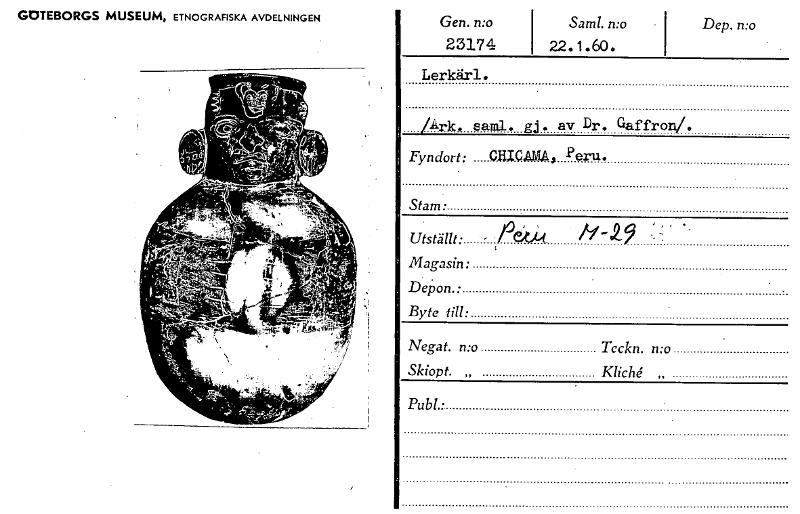 GÖTEBORGS MUSEUM, ETNOGRAFISKA AVDELNINGEN
Gen. n:o Saml. n:o Dep. n:o
23174 22.1.60.
Lerkärl.
/Ark. saml. gj. av Dr. Gaffron/.
Fyndort: CHICAMA, Peru.
Stam:
Utställt: Peru M-29
Magasin:
Depon.:
Byte till:
Negat. n:o Teckn. n:o
Skiopt. „ Kliché „
Publ.: